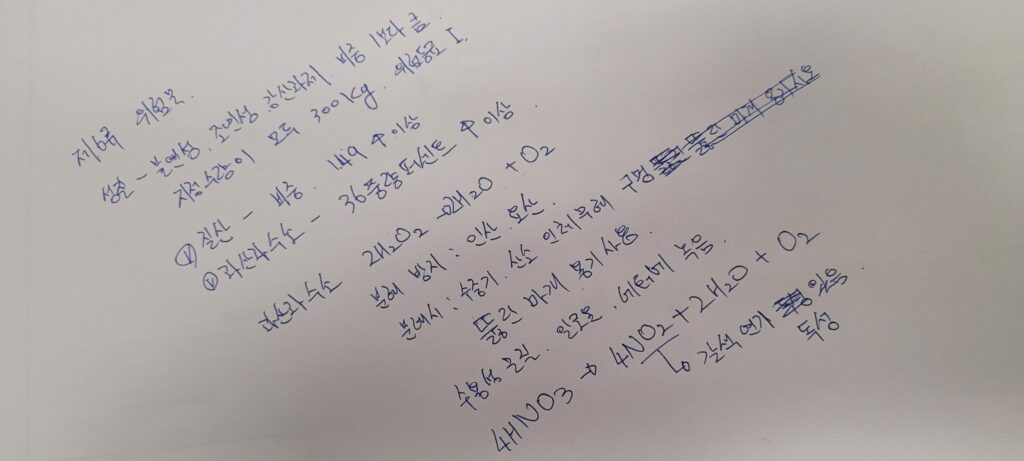 제6류 위험물.
성질 - 불연성. 조연성. 강산화제. 비중 1보다 큼.
지정수량이 모두 300kg. 위험등급 I.
① 질산 - 비중. 1.49 ↑ 이상
② 과산화수소 - 36중량퍼센트 ↑ 이상.
과산화수소 2H₂O₂ → 2H₂O + O₂
분해 방지 : 인산. 요산.
분해시 : 수증기. 산소 인체무해 구멍
뚫린 마개 용기 사용.
수용성 물질. 알코올. 에테르에 녹음.
4HNO₃ → 4NO₂ + 2H₂O + O₂
↳ 갈색 연기 있음
독성